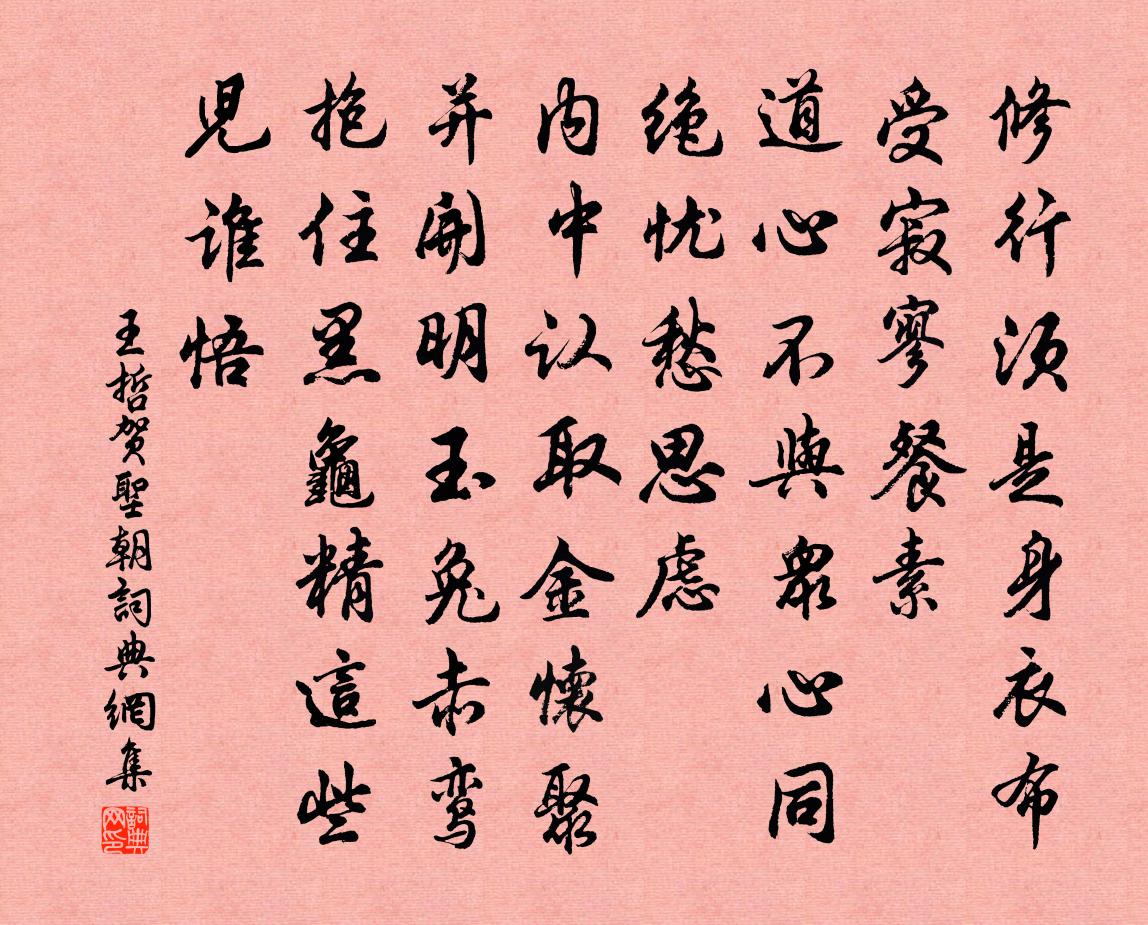 修行须是身衣布
受寂寥餐素
道心不與眾心同
绝忧愁思虑
内中认取金懷聚
并開明玉兔赤鸾
抱住黑龜精這些
児谁悟
王哲贺聖朝詞典網集
詞典网印